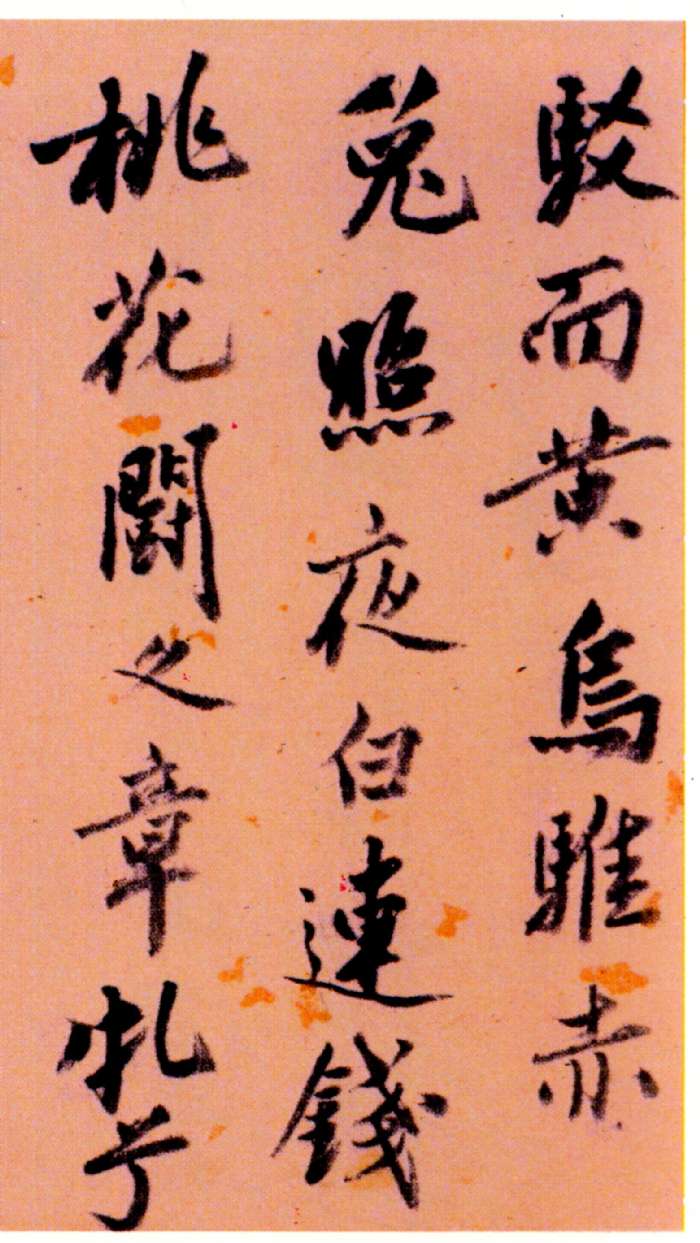 駁而黄烏騅赤
兔照夜白連錢
桃花闘之章